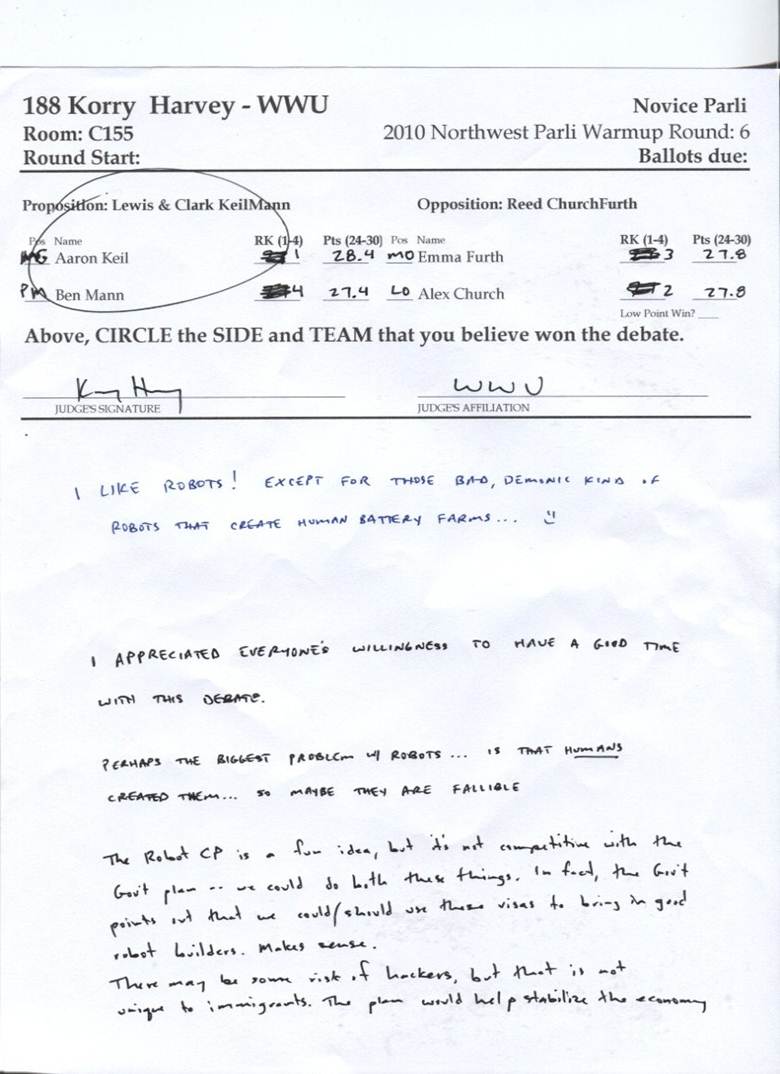 188 Korry Harvey - WWU
Novice Parli
Room: C155
2010 Northwest Parli Warmup Round: 6
Round Start:
Ballots due:
Proposition: Lewis & Clark KeilMann
Opposition: Reed ChurchFurth
Pos Name RK (1-4) Pts (24-30) Pos Name RK (1-4) Pts (24-30)
MG Aaron Keil 1 28.4 MO Emma Furth 3 27.8
PM Ben Mann 4 27.4 LO Alex Church 2 27.8
Low Point Win? ___
Above, CIRCLE the SIDE and TEAM that you believe won the debate.
WWU
JUDGE'S SIGNATURE
JUDGE'S AFFILIATION
I LIKE ROBOTS! EXCEPT FOR THOSE BAD, DEMONIC KIND OF
ROBOTS THAT CREATE HUMAN BATTERY FARMS...
I APPRECIATED EVERYONE'S WILLINGNESS TO HAVE A GOOD TIME
WITH THIS DEBATE.
PERHAPS THE BIGGEST PROBLEM W/ ROBOTS... IS THAT HUMANS
CREATED THEM... SO MAYBE THEY ARE FALLIBLE
The Robot CP is a fun idea, but it's not competitive with the
Gov't plan -- we could do both these things. In fact, the Gov't
points out that we could/should use these visas to bring in good
robot builders. Makes sense.
There may be some risk of hackers, but that is not
unique to immigrants. The plan would help stabilize the economy